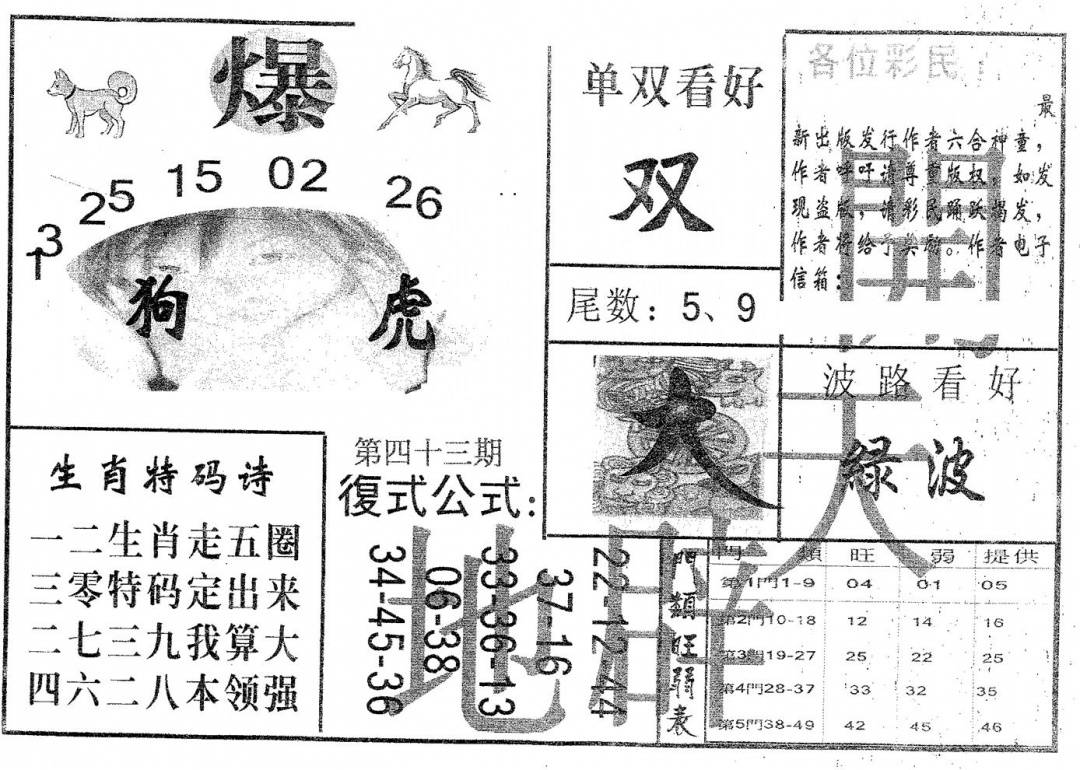 爆
13
25
15
02
26
狗
虎
单双看好
双
尾数：5、9
各位彩民：
最
新出版发行作者六合神童，
作者呼吁请尊重版权，如发
现盗版，请彩民踊跃揭发，
作者将给予奖励。作者电子
信箱：
開
大
波路看好
緑波
天
生肖特码诗
一二生肖走五圈
三零特码定出来
二七三九我算大
四六二八本领强
第四十三期
復式公式：
34-45-36
06-38
33-36-13
37-16
22-12-44
地
門類旺弱表
門類 旺 弱 提供
第1門1-9 04 01 05
第2門10-18 12 14 16
第3門19-27 25 22 25
第4門28-37 33 32 35
第5門38-49 42 45 46